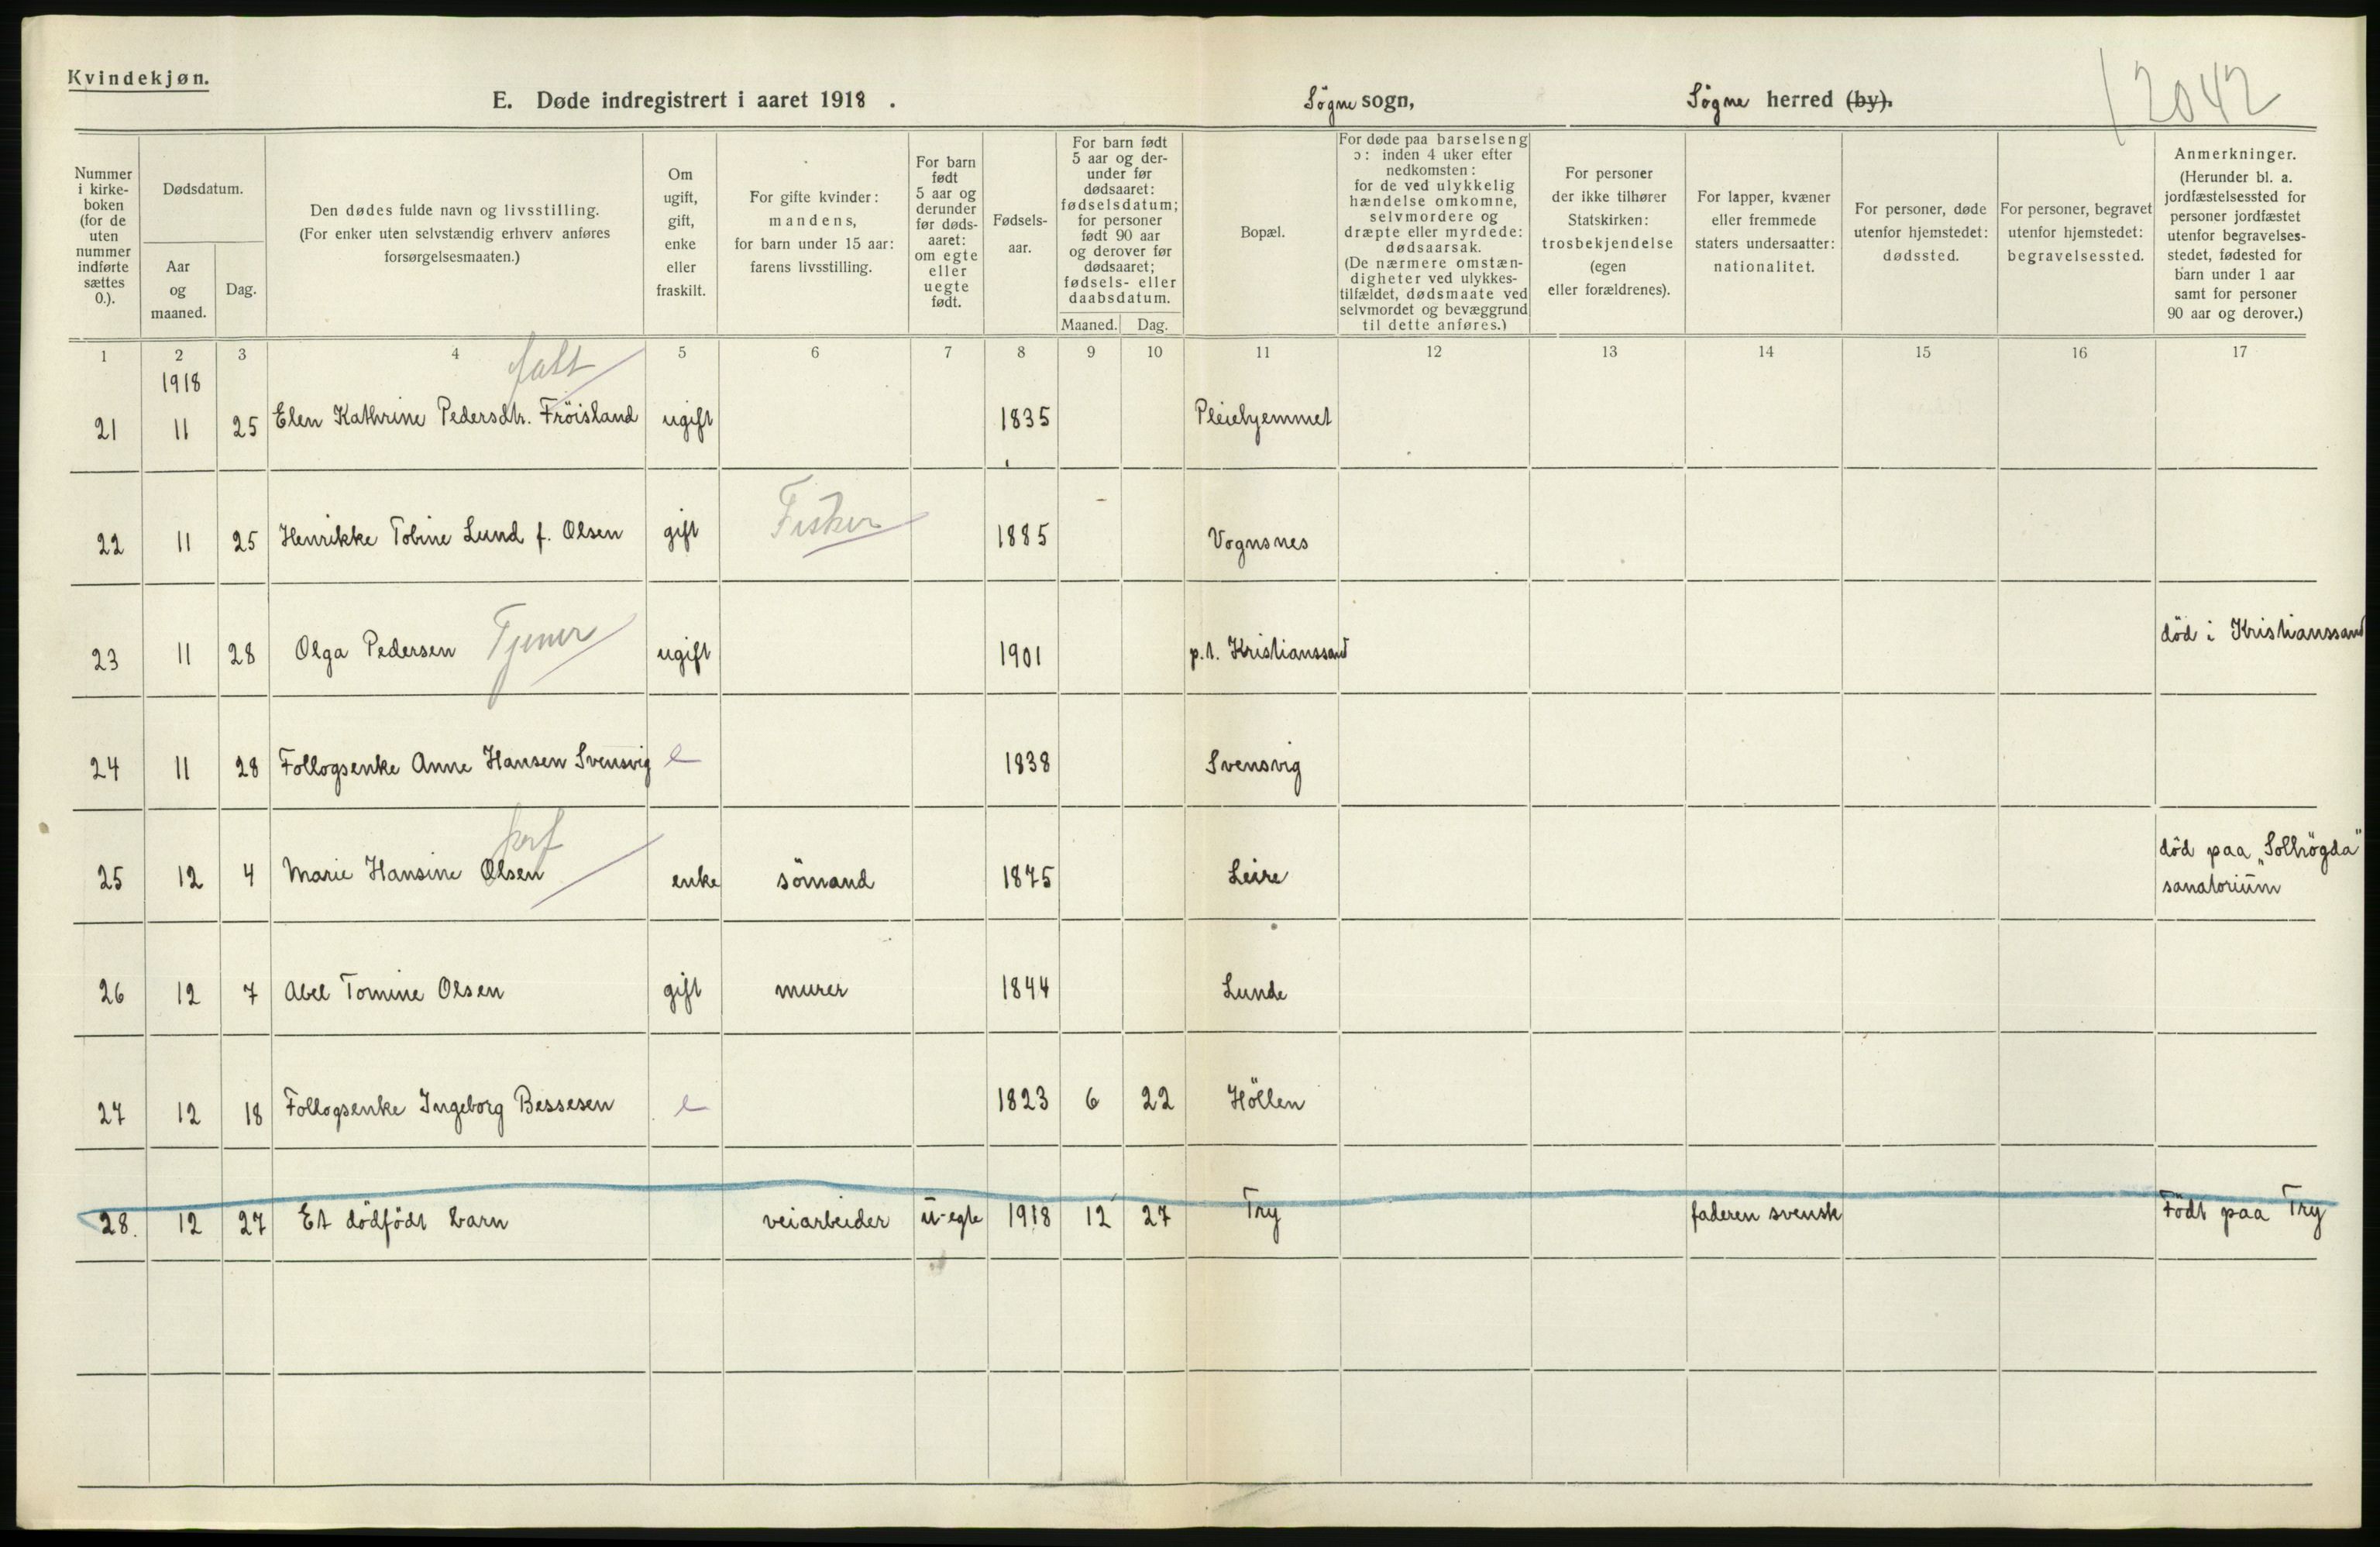 Kvindekjøn.
E. Døde indregistrert i aaret 1918 . Søgne sogn, Søgne herred (by).
2042
Nummer i kirkeboken (for de uten nummer indførte sættes 0.).
Dødsdatum.
Aar og maaned.
Dag.
Den dødes fulde navn og livsstilling.
(For enker uten selvstændig erhverv anføres
forsørgelsesmaaten.)
Om
ugift,
gift,
enke
eller
fraskilt.
For gifte kvinder:
mandens,
for barn under 15 aar:
farens livsstilling.
For barn
født
5 aar og
derunder
før døds-
aaret:
om egte
eller
uegte
født.
Fødsels-
aar.
For barn født
5 aar og der-
under før
dødsaaret:
fødselsdatum;
for personer
født 90 aar
og derover før
dødsaaret;
fødsels- eller
daabsdatum.
Maaned. Dag.
Bopæl.
For døde paa barselseng
ɔ: inden 4 uker efter
nedkomsten:
for de ved ulykkelig
hændelse omkomne,
selvmordere og
dræpte eller myrdede:
dødsaarsak.
(De nærmere omstæn-
digheter ved ulykkes-
tilfældet, dødsmaate ved
selvmordet og bevæggrund
til dette anføres.)
For personer
der ikke tilhører
Statskirken:
trosbekjendelse
(egen
eller forældrenes).
For lapper, kvæner
eller fremmede
staters undersaatter:
nationalitet.
For personer, døde
utenfor hjemstedet:
dødssted.
For personer, begravet
utenfor hjemstedet:
begravelsessted.
Anmerkninger.
(Herunder bl. a.
jordfæstelsessted for
personer jordfæstet
utenfor begravelses-
stedet, fødested for
barn under 1 aar
samt for personer
90 aar og derover.)
1 2 3 4 5 6 7 8 9 10 11 12 13 14 15 16 17
1918
21 11 25 Elen Kathrine Pedersdtr. Fröisland ugift 1835 Pleiehjemmet
22 11 25 Henrikke Tobine Lund f. Olsen gift Fisker 1885 Vognsnes
23 11 28 Olga Pedersen Tjener ugift 1901 p.t. Kristianssand död i Kristianssand
24 11 28 Follogsenke Anne Hansen Svensvig e 1838 Svensvig
25 12 4 Marie Hansine Olsen enke sömand 1875 Leire död paa „Solhögda"
sanatorium
26 12 7 Abel Tomine Olsen gift murer 1844 Lunde
27 12 18 Follogsenke Ingeborg Bessesen e 1823 6 22 Höllen
28. 12 27 Et dödfödt barn veiarbeider u-egte 1918 12 27 Try faderen svensk Födt paa Try